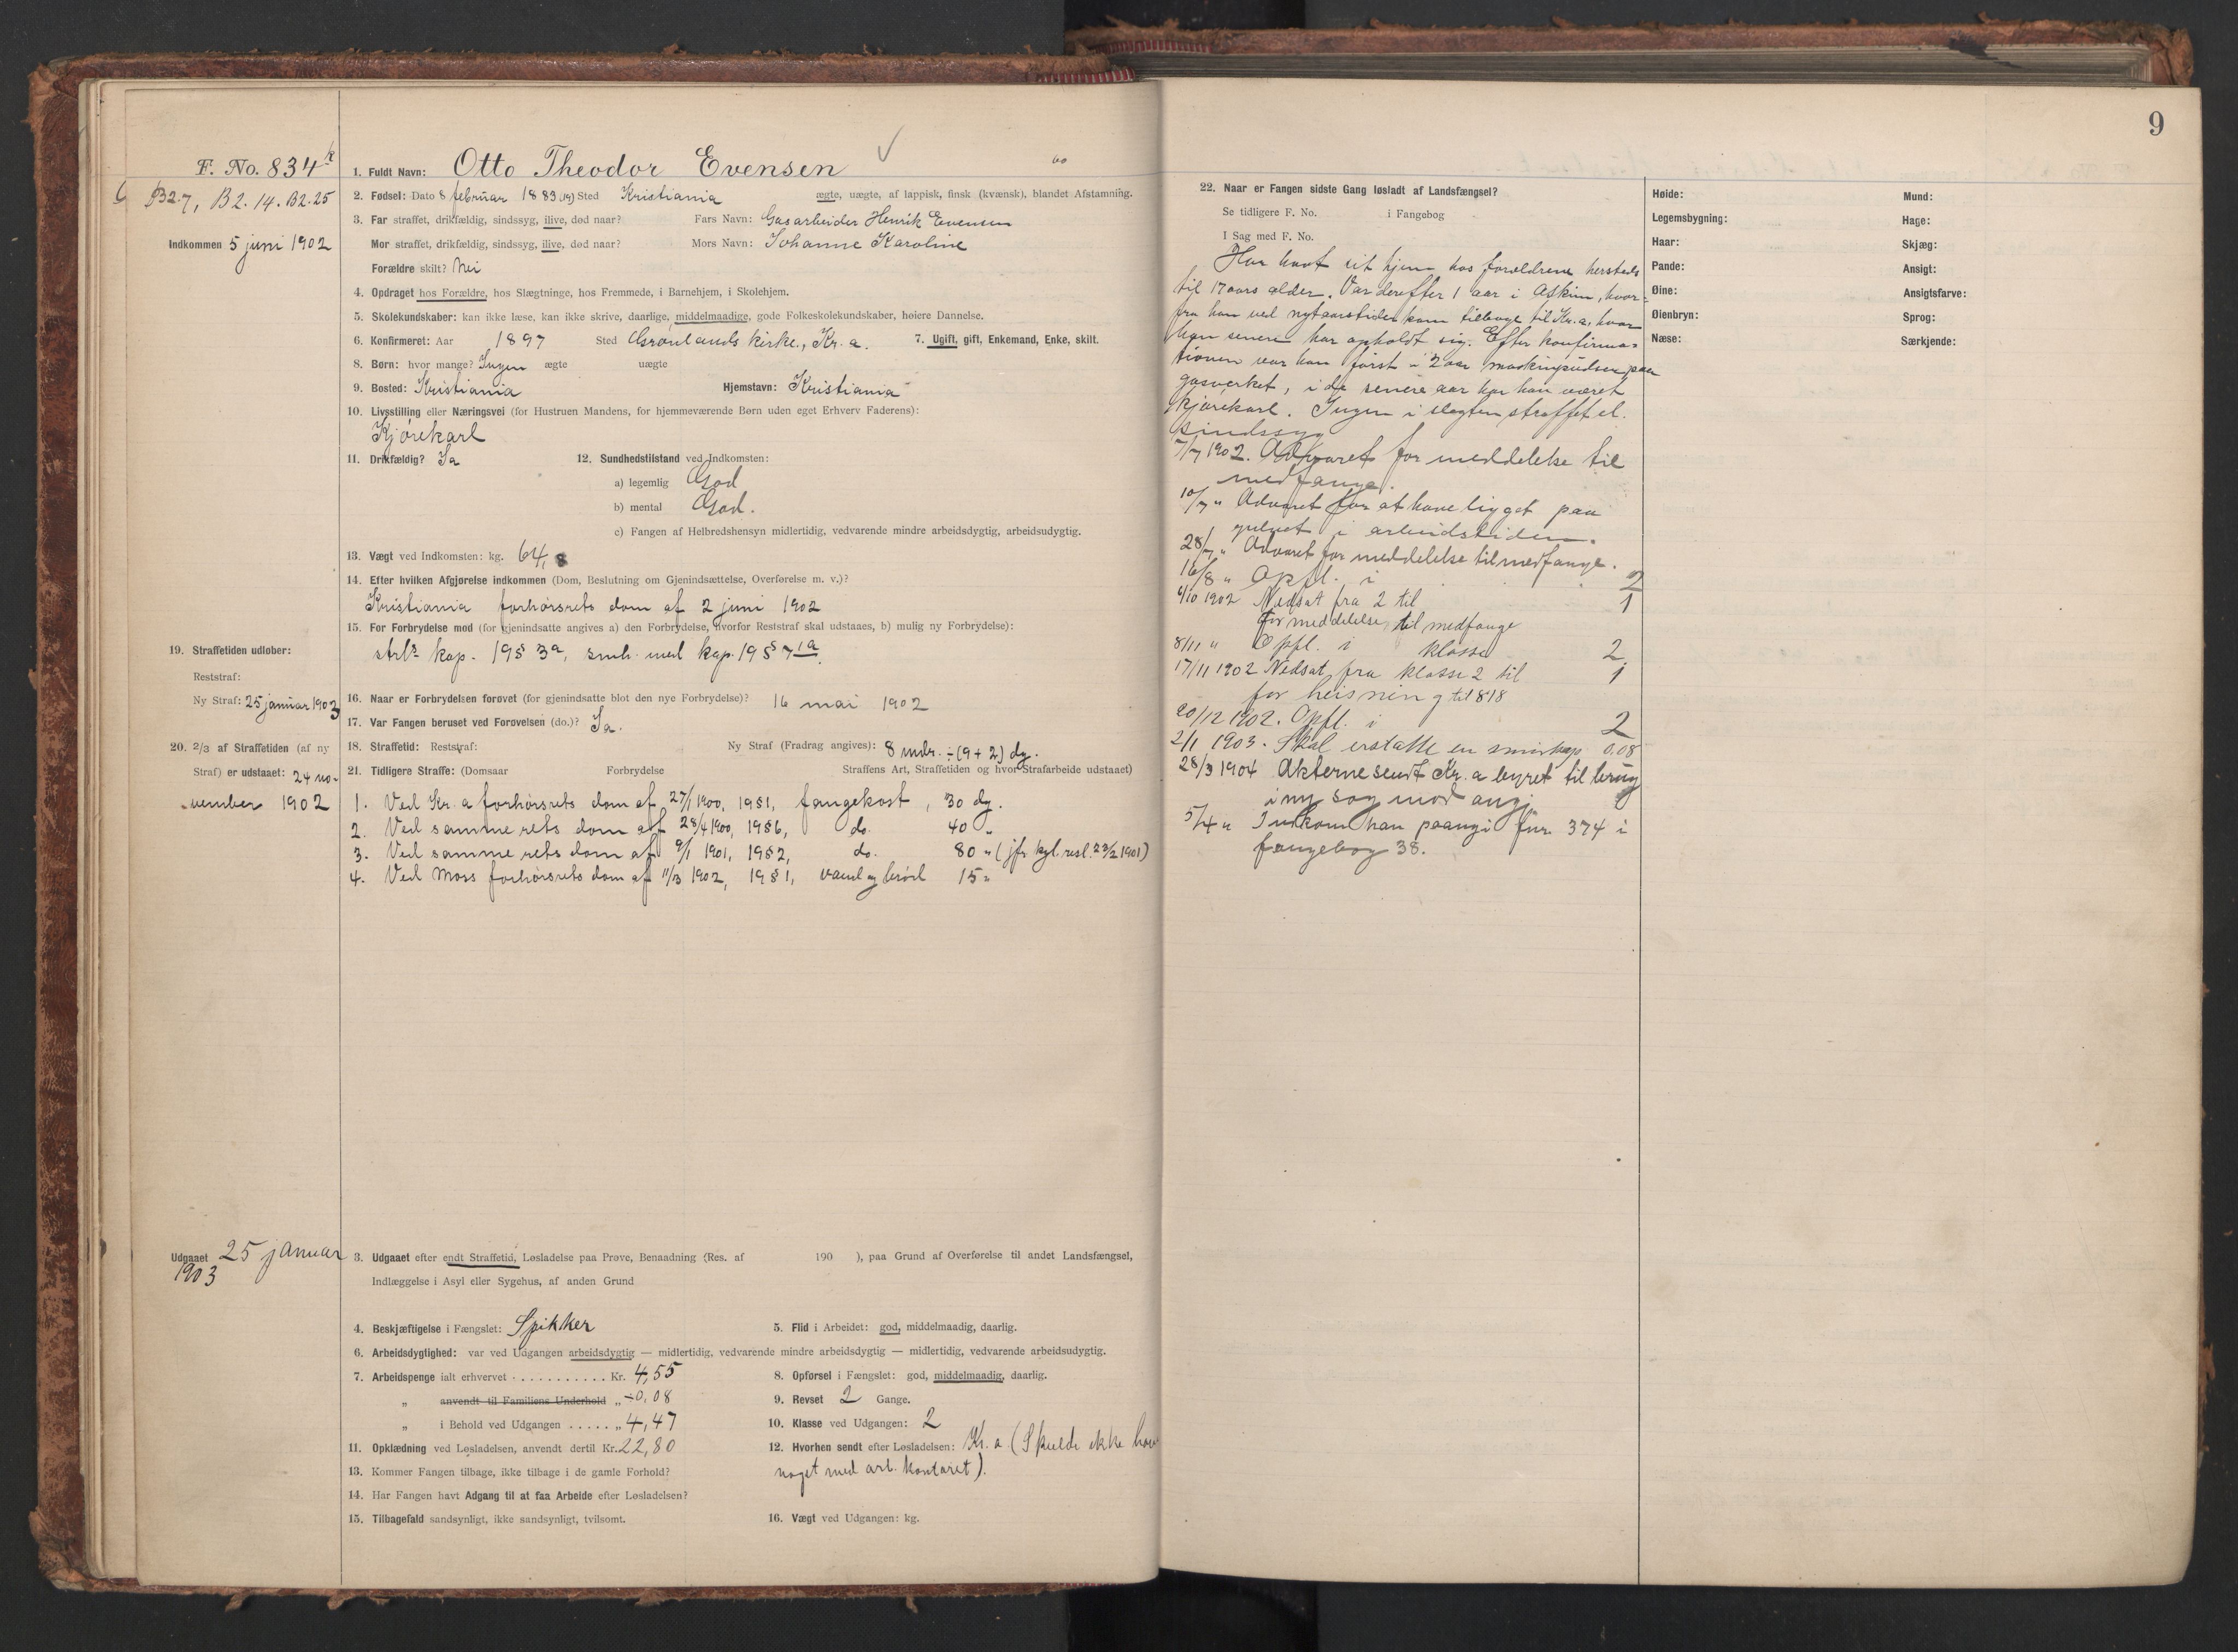 9
F. No. 834
B2.7, B2.14. B2.25
Indkommen 5 juni 1902
1. Fuldt Navn: Otto Theodor Evensen
2. Fødsel: Dato 8 februar 1883 (19) Sted Kristiania ægte, uægte, af lappisk, finsk (kvænsk), blandet Afstamning.
3. Far straffet, drikfældig, sindssyg, ilive, død naar? Fars Navn: Gasarbeider Henrik Evensen
Mor straffet, drikfældig, sindssyg, ilive, død naar? Mors Navn: Johanne Karoline
Forældre skilt? Nei
4. Opdraget hos Forældre, hos Slægtninge, hos Fremmede, i Barnehjem, i Skolehjem.
5. Skolekundskaber: kan ikke læse, kan ikke skrive, daarlige, middelmaadige, gode Folkeskolekundskaber, høiere Dannelse.
6. Konfirmeret: Aar 1897 Sted Grønlands kirke, Kr.a. 7. Ugift, gift, Enkemand, Enke, skilt.
8. Børn: hvor mange? Ingen ægte uægte
9. Bosted: Kristiania Hjemstavn: Kristiania
10. Livsstilling eller Næringsvei (for Hustruen Mandens, for hjemmeværende Børn uden eget Erhverv Faderens):
Kjørekarl
11. Drikfældig? Ja 12. Sundhedstilstand ved Indkomsten:
a) legemlig God
b) mental God.
c) Fangen af Helbredshensyn midlertidig, vedvarende mindre arbeidsdygtig, arbeidsudygtig.
13. Vægt ved Indkomsten: kg. 64,
14. Efter hvilken Afgjørelse indkommen (Dom, Beslutning om Gjenindsættelse, Overførelse m. v.)?
Kristiania forhørsrets dom af 2 juni 1902
15. For Forbrydelse mod (for gjenindsatte angives a) den Forbrydelse, hvorfor Reststraf skal udstaaes, b) mulig ny Forbrydelse):
strls kap. 19 § 3a, smh. med kap. 19 § 7 1a.
19. Straffetiden udløber:
Reststraf:
Ny Straf: 25 januar 1903
16. Naar er Forbrydelsen forøvet (for gjenindsatte blot den nye Forbrydelse)? 16 mai 1902
17. Var Fangen beruset ved Forøvelsen (do.)? Ja.
20. 2/3 af Straffetiden (af ny
Straf) er udstaaet: 24 no-
vember 1902
18. Straffetid: Reststraf: Ny Straf (Fradrag angives): 8 mdr. ÷ (9 + 2) dg.
21. Tidligere Straffe: (Domsaar Forbrydelse Straffens Art, Straffetiden og hvor Strafarbeide udstaaet)
1. Ved Kr.a forhørsrets dom af 27/1 1900, 19 § 1, fangekost, 30 dg.
2. Ved samme rets dom af 28/4 1900, 19 § 6, do. 40 "
3. Ved samme rets dom af 9/1 1901, 19 § 2, do. 80 " (jfr kgl. resl. 23/2 1901)
4. Ved Moss forhørsrets dom af 11/3 1902, 19 § 1, vand og brød 15 "
Udgaaet 25 januar
1903
3. Udgaaet efter endt Straffetid, Løsladelse paa Prøve, Benaadning (Res. af 190 ), paa Grund af Overførelse til andet Landsfængsel,
Indlæggelse i Asyl eller Sygehus, af anden Grund
4. Beskjæftigelse i Fængslet: Spikker 5. Flid i Arbeidet: god, middelmaadig, daarlig.
6. Arbeidsdygtighed: var ved Udgangen arbeidsdygtig — midlertidig, vedvarende mindre arbeidsdygtig — midlertidig, vedvarende arbeidsudygtig.
7. Arbeidspenge ialt erhvervet . . . . . . . . . . . Kr. 4,55 8. Opførsel i Fængslet: god, middelmaadig, daarlig.
" anvendt til Familiens Underhold " ÷0,08 9. Revset 2 Gange.
" i Behold ved Udgangen . . . . . " 4,47 10. Klasse ved Udgangen: 2
11. Opklædning ved Løsladelsen, anvendt dertil Kr. 22,80 12. Hvorhen sendt efter Løsladelsen: Kr.a. (Skulde ikke have
noget med arb. kontoret).
13. Kommer Fangen tilbage, ikke tilbage i de gamle Forhold?
14. Har Fangen havt Adgang til at faa Arbeide efter Løsladelsen?
15. Tilbagefald sandsynligt, ikke sandsynligt, tvilsomt. 16. Vægt ved Udgangen: kg.
22. Naar er Fangen sidste Gang løsladt af Landsfængsel?
Se tidligere F. No. i Fangebog
I Sag med F. No.
Har havt sit hjem hos forældrene hersteds
til 17 aars alder. Var derefter 1 aar i Askim, hvor-
fra han ved nytaarstider kom tilbage til Kr.a, hvor
han senere har opholdt sig. Efter konfirma-
tionen var han først i 2 aar maskinpudser paa
gasverket, i de senere aar har han været
kjørekarl. Ingen i slegten straffet el.
sindssyg
7/7 1902. Advaret for meddelelse til
medfange.
10/7 " Advaret for at have ligget paa
gulvet i arbeidstiden.
28/7 " Advaret for meddelelse til medfange.
16/8 " Opfl. i 2
6/10 1902 Nedsat fra 2 til 1
for meddelelse til medfange
8/11 " Opfl. i klasse 2
17/11 1902 Nedsat fra klasse 2 til 1
for heisning til 818
20/12 1902. Opfl. i 2
2/1 1903. Skal erstatte en smørkop 0.08
28/3 1904 Akterne sendt Kr.a byret til brug
i ny sag mod angj.
5/4 " Indkom han paany i fnr. 374 i
fangebog 38.
Høide: Mund:
Legemsbygning: Hage:
Haar: Skjæg:
Pande: Ansigt:
Øine: Ansigtsfarve:
Øienbryn: Sprog:
Næse: Særkjende: